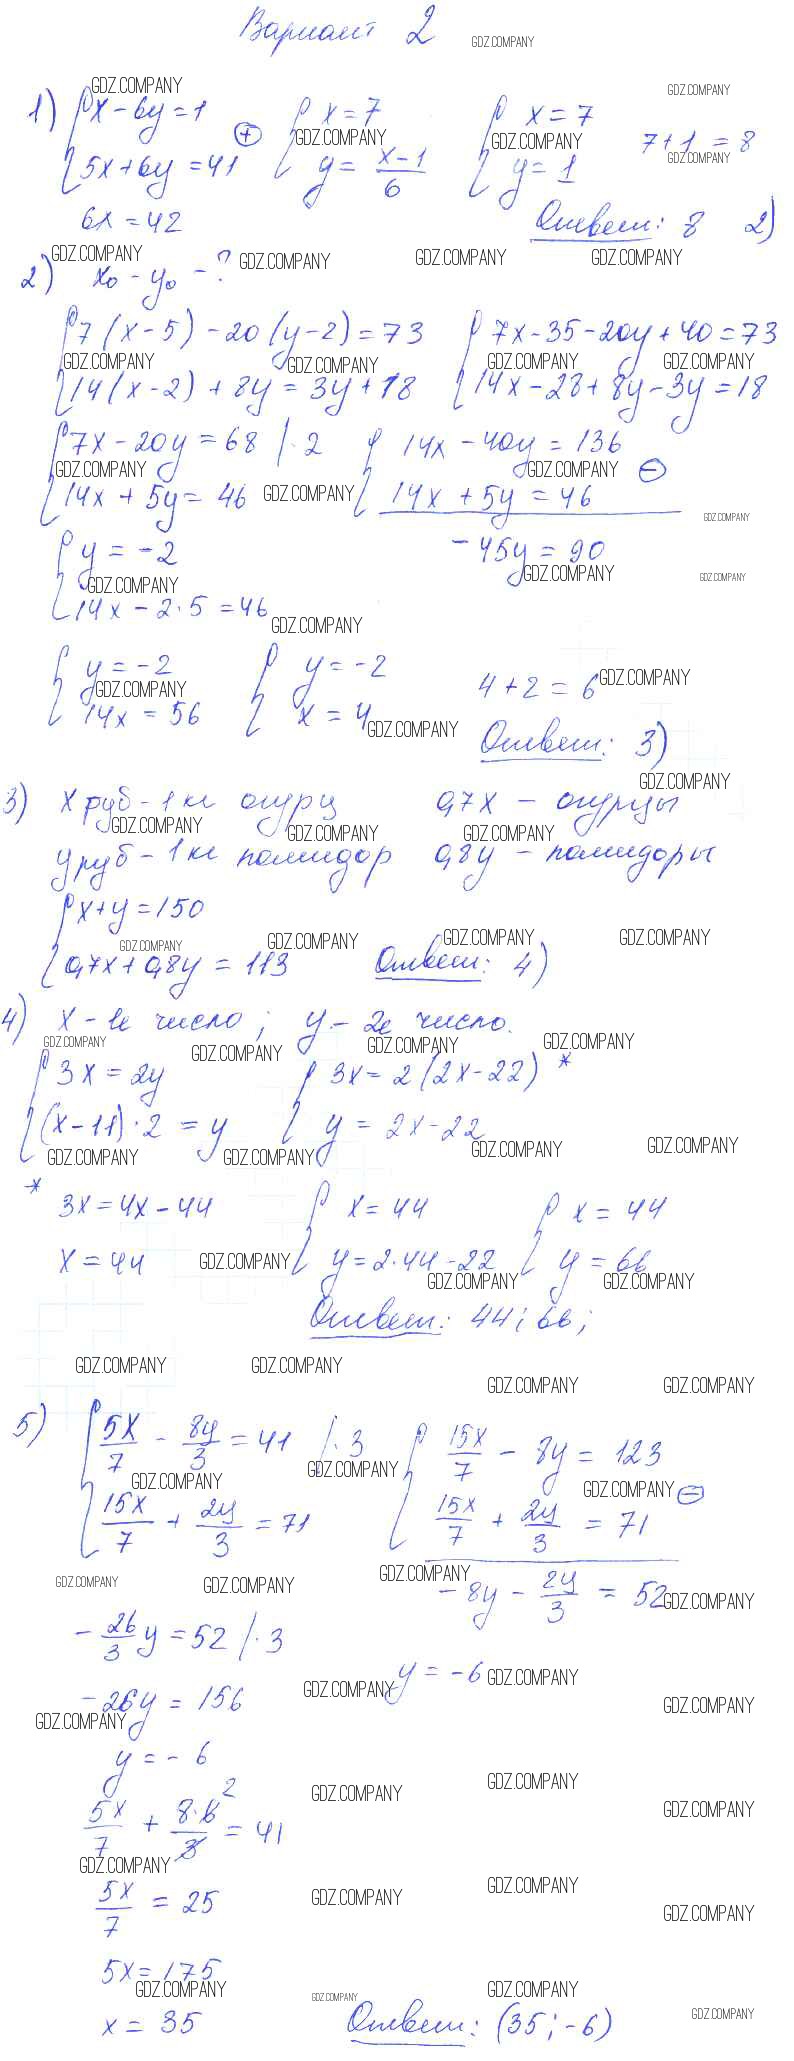 Вариант 2
1) { x - 6y = 1 ⊕ { x = 7 { x = 7 7 + 1 = 8
{ 5x + 6y = 41 { y = (x-1)/6 { y = 1
6x = 42 Ответ: 8 2)
2) x₀ - y₀ - ?
{ 7(x-5) - 20(y-2) = 73 { 7x - 35 - 20y + 40 = 73
{ 14(x-2) + 8y = 3y + 18 { 14x - 28 + 8y - 3y = 18
{ 7x - 20y = 68 |·2 { 14x - 40y = 136 ⊖
{ 14x + 5y = 46 { 14x + 5y = 46
{ y = -2 -45y = 90
{ 14x - 2·5 = 46
{ y = -2 { y = -2 4 + 2 = 6
{ 14x = 56 { x = 4
Ответ: 3)
3) x руб - 1 кг огурц 0,7x - огурцы
y руб - 1 кг помидор 0,8y - помидоры
{ x + y = 150
{ 0,7x + 0,8y = 113 Ответ: 4)
4) x - 1е число; y - 2е число.
{ 3x = 2y { 3x = 2(2x-22) *
{ (x-11)·2 = y { y = 2x-22
* 3x = 4x - 44 { x = 44 { x = 44
x = 44 { y = 2·44-22 { y = 66
Ответ: 44; 66;
5) { 5x/7 - 8y/3 = 41 |·3 { 15x/7 - 8y = 123 ⊖
{ 15x/7 + 2y/3 = 71 { 15x/7 + 2y/3 = 71
-8y - 2y/3 = 52
-26/3 y = 52 |·3
y = -6
-26y = 156
y = -6
5x/7 + 8·6²/3 = 41
5x/7 = 25
5x = 175
x = 35 Ответ: (35; -6)
GDZ.COMPANY